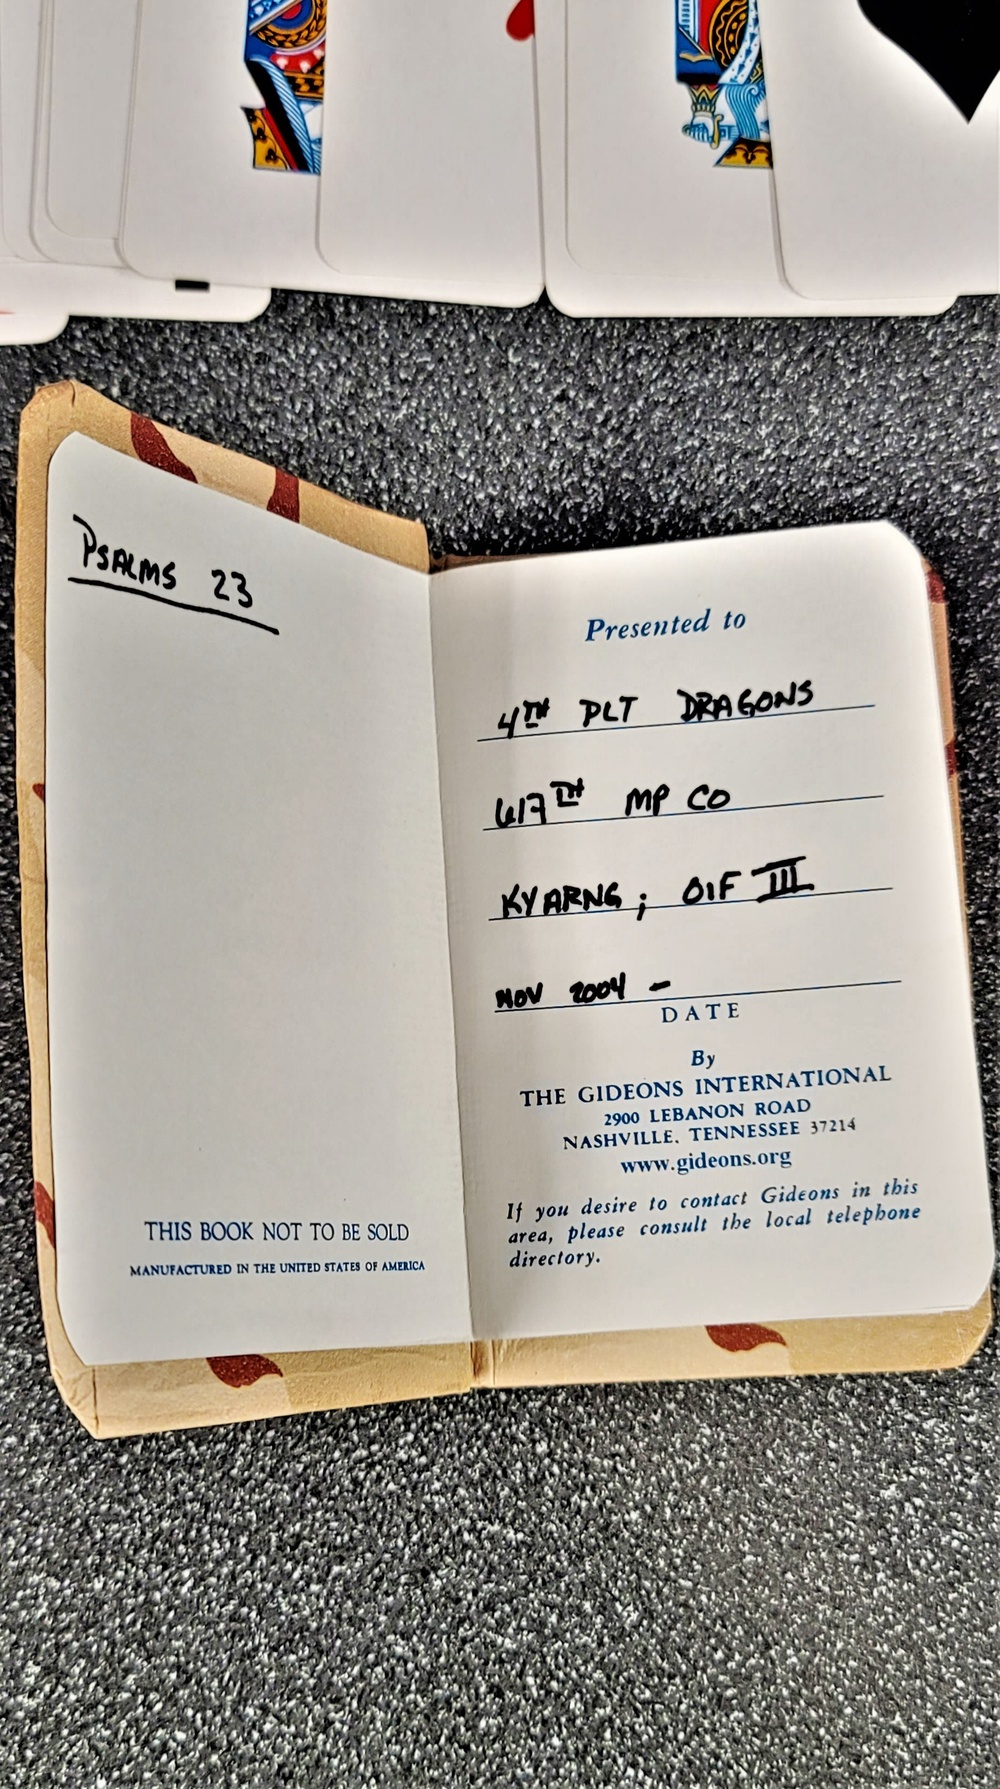 PSALMS 23
THIS BOOK NOT TO BE SOLD
MANUFACTURED IN THE UNITED STATES OF AMERICA
Presented to
4TH PLT DRAGONS
617TH MP CO
KYARNG; OIF III
NOV 2004 -
DATE
By
THE GIDEONS INTERNATIONAL
2900 LEBANON ROAD
NASHVILLE, TENNESSEE 37214
www.gideons.org
If you desire to contact Gideons in this
area, please consult the local telephone
directory.